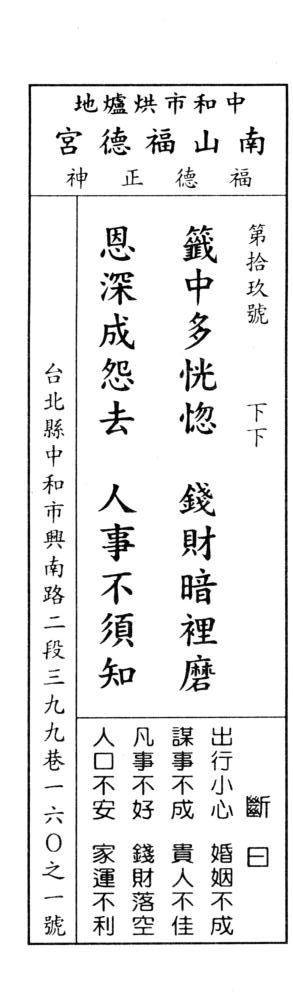 中和市烘爐地
南山福德宮
福德正神
第拾玖號 下下
籤中多恍惚 錢財暗裡磨
恩深成怨去 人事不須知
斷曰
出行小心 婚姻不成
謀事不成 貴人不佳
凡事不好 錢財落空
人口不安 家運不利
台北縣中和市興南路二段三九九巷一六〇之一號